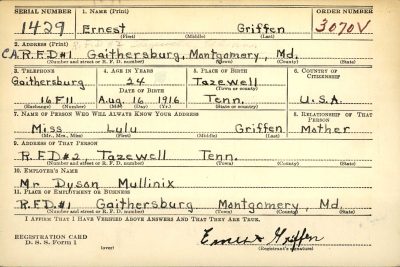 SERIAL NUMBER 1. NAME (Print) ORDER NUMBER
1429 Ernest Griffen 3070V
(First) (Middle) (Last)
2. ADDRESS (Print)
C.A. R.F.D#1 Gaithersburg, Montgomery, Md.
(Number and street or R. F. D. number) (Town) (County) (State)
3. TELEPHONE 4. AGE IN YEARS 5. PLACE OF BIRTH 6. COUNTRY OF CITIZENSHIP
Gaithersburg 24 Tazewell
DATE OF BIRTH (Town or county)
16F11 Aug. 16 1916 Tenn. U.S.A.
(Exchange) (Number) (Mo.) (Day) (Yr.) (State or country)
7. NAME OF PERSON WHO WILL ALWAYS KNOW YOUR ADDRESS 8. RELATIONSHIP OF THAT PERSON
Miss Lulu Griffen Mother
(Mr., Mrs., Miss) (First) (Middle) (Last)
9. ADDRESS OF THAT PERSON
R.F.D#2 Tazewell Tenn.
(Number and street or R. F. D. number) (Town) (County) (State)
10. EMPLOYER'S NAME
Mr Dyson Mullinix
11. PLACE OF EMPLOYMENT OR BUSINESS
R.F.D.#1 Gaithersburg Montgomery, Md.
(Number and street or R. F. D. number) (Town) (County) (State)
I AFFIRM THAT I HAVE VERIFIED ABOVE ANSWERS AND THAT THEY ARE TRUE.
REGISTRATION CARD
D. S. S. Form 1 (over) Ernest Griffen
(Registrant's signature)